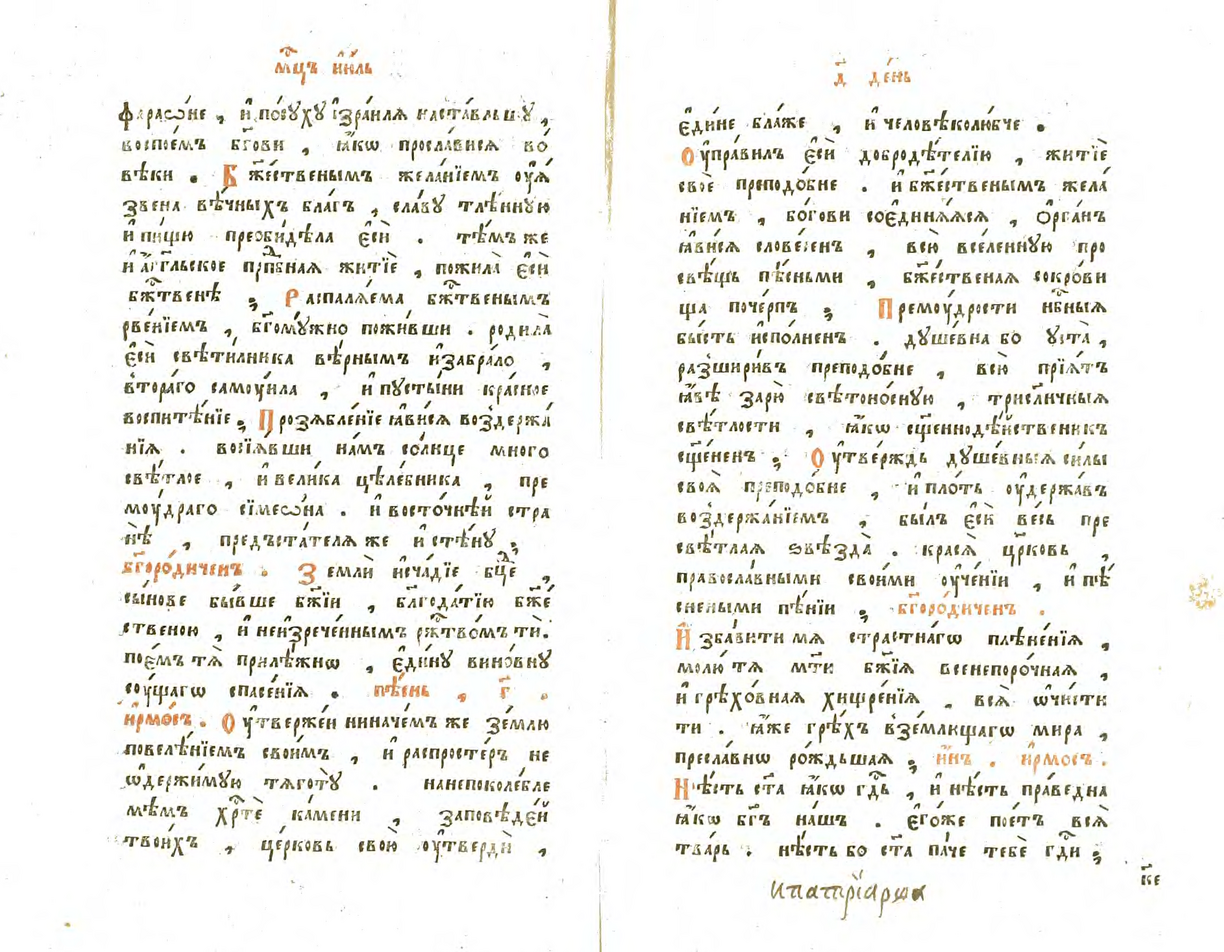 мц҃ъ ію́ль
фараѡ́не , и҆ посꙋ́хꙋ і҆зра́иля наста́вльшꙋ ,
воспоє́мъ бг҃ови , ꙗ҆́кѡ просла́вися во
вѣ́ки . Бж҃е́ственымъ жела́нїемъ оу҆ѧ́
звена вѣ́чныхъ бла́гъ , сла́вꙋ тлѣ́ннꙋю
и҆ пи́щꙋ преѡби́дѣла є҆сѝ . тѣ́мъ же
и҆ а҆́гг҃льское прпⷣбная житїѐ , пожила̀ є҆сѝ
бж҃твенѣ ; Распаля́ема бж҃твенымъ
рве́нїемъ , бг҃омꙋ́жно пожи́вши . родила̀
є҆сѝ свѣти́лника вѣ́рнымъ и҆забра́ло ,
вторáго самоу́ила , и҆ пꙋсты́ни кра́сное
воспитѣ́нїе ; Прозябле́нїе ꙗ҆ви́ся воздержа́
нїя . возсїѧ́вши на́мъ со́лнце много
свѣ́тлое , и҆ вели́ка цѣле́бника , пре
моу́драго сїмеѡ́на . и҆ восто́чнѣй стра
нѣ̀ , предъста́теля же и҆ стѣ́нꙋ ;
бг҃оро́диченъ . Землѝ и҆сча́дїе бц҃е ,
сы́нове бы́вше бж҃їи , бл҃года́тїю бж҃е́
ственою , и҆ неи҆зрече́ннымъ рж҃тво́мъ тѝ .
пое́мъ тѧ̀ прилѣ́жнѡ , є҆ди́нꙋ вино́внꙋ
соу́щагѡ спасе́нїя . пѣ́снь , г҃ .
і҆рмо́съ . Оу҆твержéи ниначéмъ же зе́млю
повелѣ́нїемъ свои́мъ , и҆ распросте́ръ не
ѡ҆держи́мꙋю тѧготꙋ̀ . нанепоколе́бле
мѣмъ хрⷭ҇тѐ ка́мени , за́повѣдей
твои́хъ , це́рковь свою̀ оу҆твердѝ ,
д҃ де́нь
є҆ди́не бла́же , и҆ человѣколю́бче .
Оу҆пра́вилъ є҆сѝ добродѣ́телїю , житїѐ
своѐ преподо́бне . и҆ бж҃е́ственымъ жела́
нїемъ , бо́гови соєдинѧ́ѧся , о҆рга́нъ
ꙗ҆ви́ся слове́сенъ , всю̀ вселе́ннꙋю про
свѣ́щь пѣ́сньми , бж҃е́ственая сокро́ви
ща поче́рпъ ; Премоу́дрости нб҃ныя
бы́сть и҆спо́лненъ . дꙋше́вна бо ꙋ҆ста̀ ,
разшири́въ преподо́бне , всю̀ прїя́тъ
ꙗ҆́вѣ зарю̀ свѣтоно́снꙋю , трисл҃ичныя
свѣ́тлости , ꙗ҆́кѡ сщ҃еннодѣ́йственикъ
сщ҃е́ненъ ; Оу҆твержь дꙋше́вныя си́лы
своя̀ преподо́бне , и҆ пло́ть оу҆держа́въ
воздержа́нїемъ , бы́лъ є҆сѝ ве́сь пре
свѣ́тлая ѕвѣзда̀ . крася̀ цр҃ковь ,
правосла́вными свои́ми оу҆че́нїи , и҆ пѣ́
снеными пѣ́нїи ; бг҃оро́диченъ .
И҆зба́вити мя стра́стнагѡ плѣне́нїя ,
молю́ тя мт҃и бж҃їя всенепоро́чная ,
и҆ грѣхо́вная хищре́нїя , вся̀ ѡ҆чи́сти
ти . ꙗ҆́же грѣ́хъ взе́млющагѡ мира ,
пресла́внѡ ро́ждьшая ; и҆н҃ъ . і҆рмо́съ .
Нѣ́сть ст҃а ꙗ҆́кѡ гд҃ь , и҆ нѣ́сть пра́ведна
ꙗ҆́кѡ бг҃ъ на́шъ . є҆го́же пое́тъ вся̀
тва́рь . нѣ́сть бо ст҃а па́че тебѐ гд҃и ;
к҃е
ипатрїарха